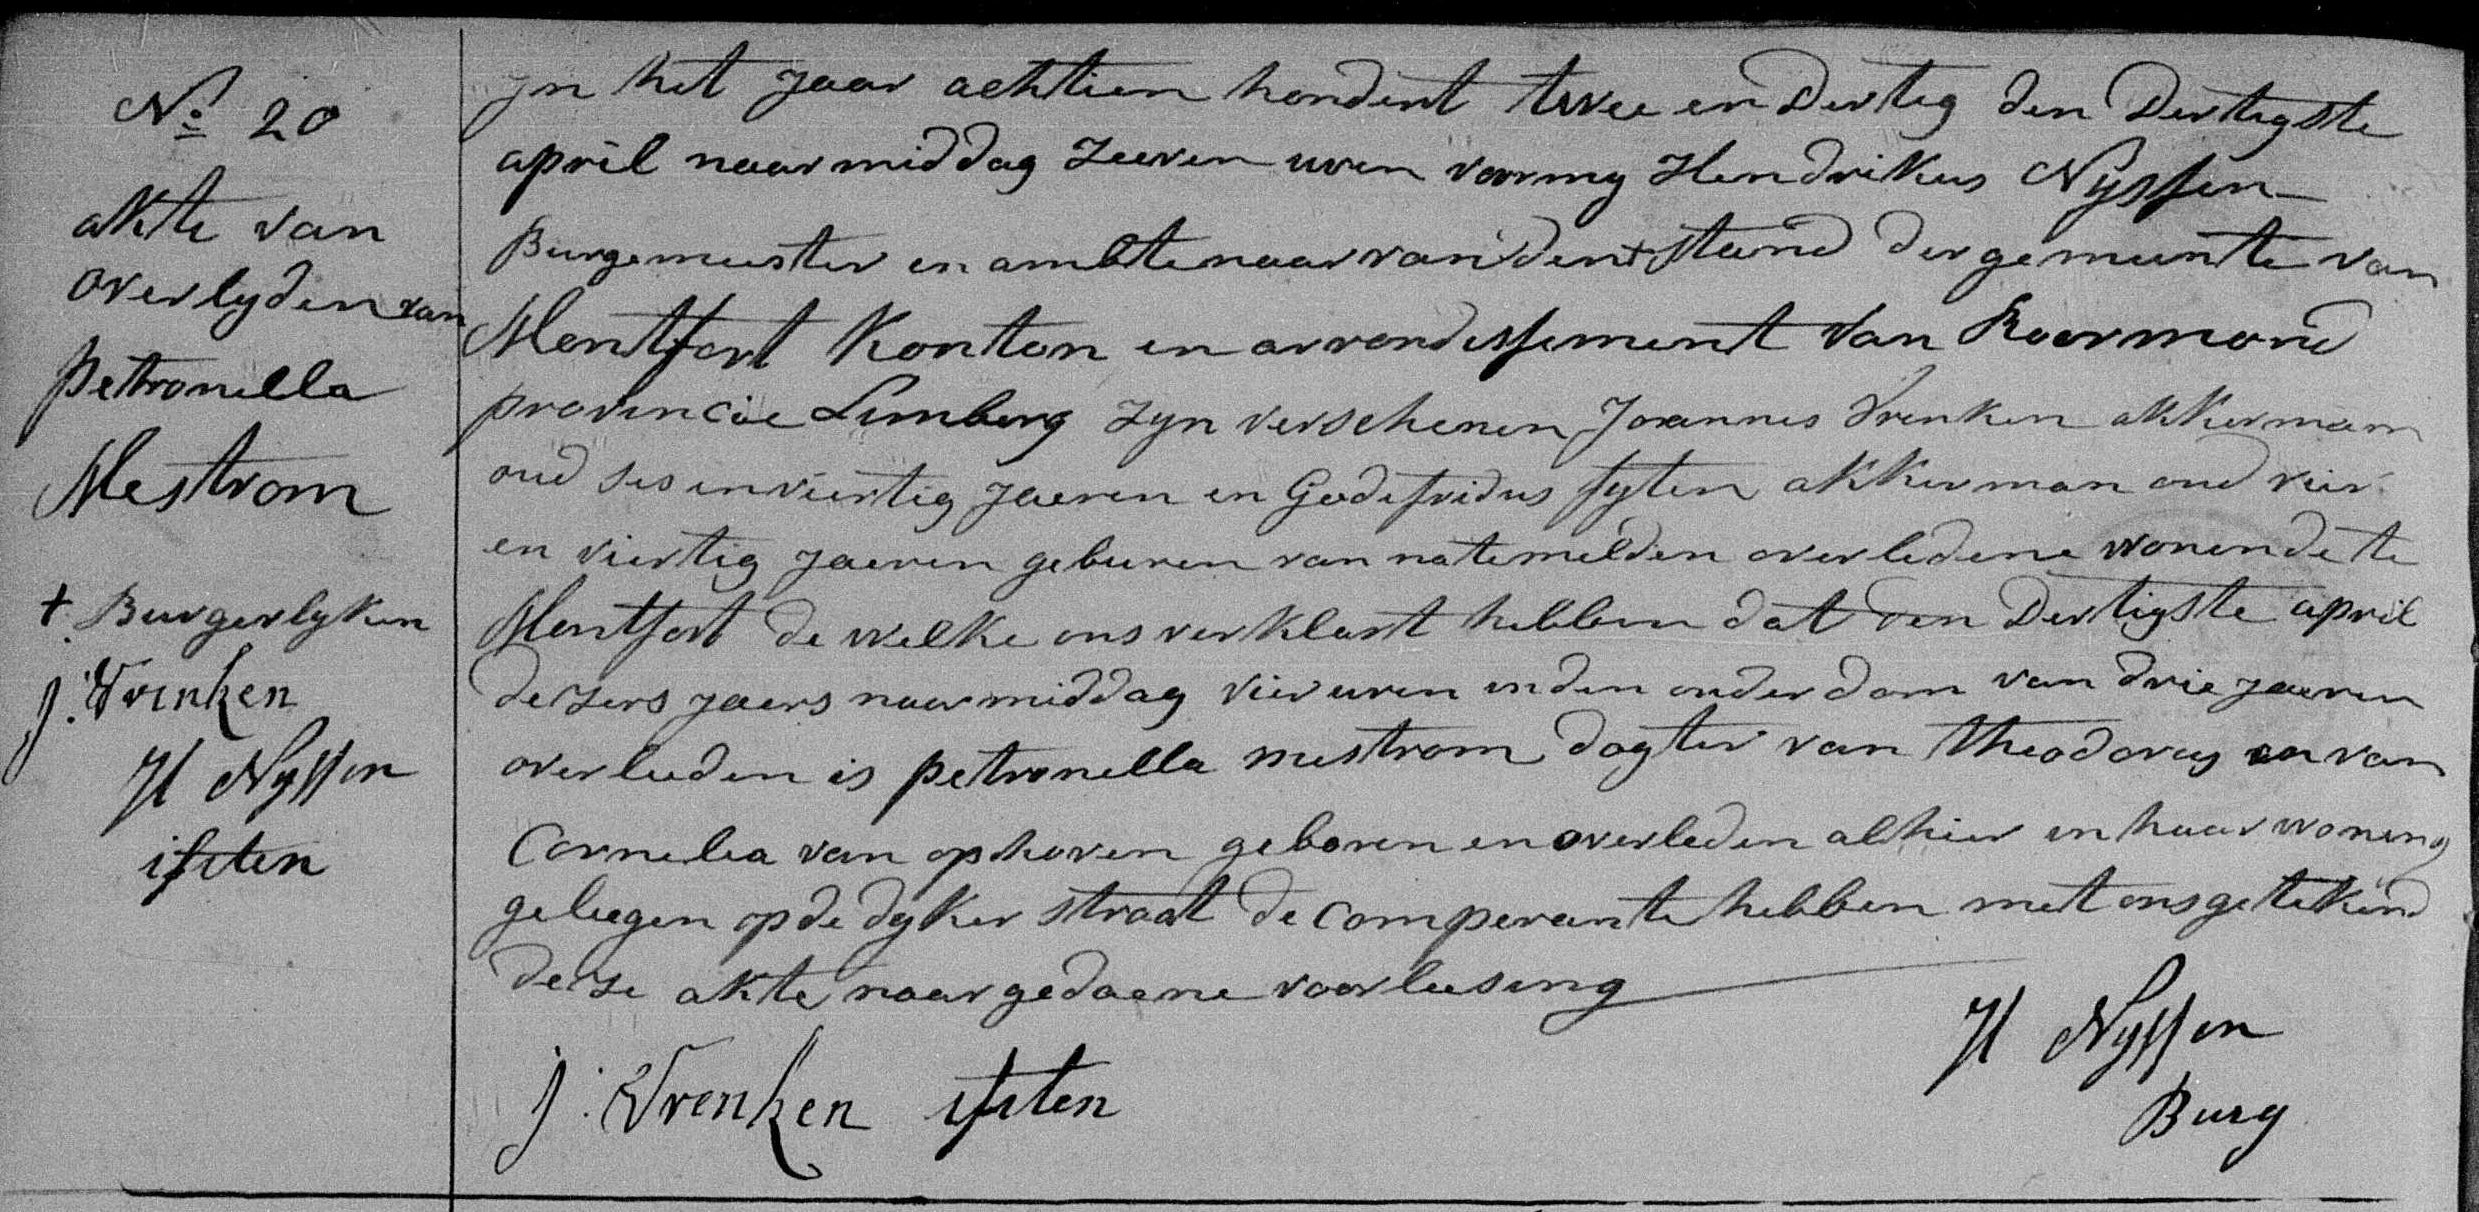 No 20
akte van
overlyden van
petronella
Mestrom
+ Burgerlyken
J. Vrenken
H Nyssen
In het Jaar achttien hondert twee en Dertig den Dertigste
april naarmiddag Zeeven uren voor my Hendrikus Nyssen
Burgemeester en ambtenaar van den + staend der gemeente van
Montfort Konton en arrondissement van Roermond
provincie Limburg zyn verschenen Joannes Vrenken akkerman
oud ses en viertig Jaeren en Godefridus fyten akkerman oud vier
en viertig Jaeren geburen van natemelden overledene wonende te
Montfort de welke ons verklart hebben dat den Dertigste april
dezers Jaers naarmiddag vier uren in den ouderdom van drie Jaeren
overleeden is petronella mestrom dogter van theodorus en van
Cornelia van ophoven geboren en overleden alhier in haar woning
geleegen op de dyker straat de comperante hebben met ons getekend
deze akte naar gedaene voorleesing
J. Vrenken
H Nyssen
Burg